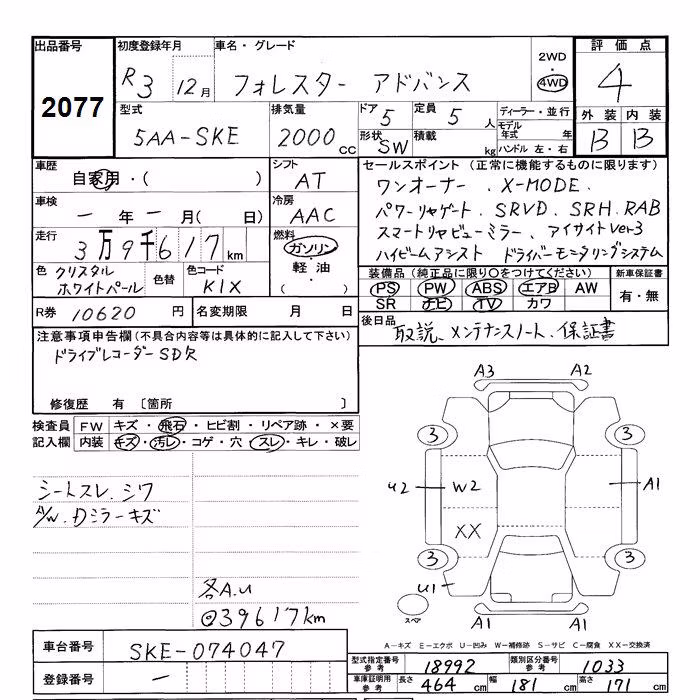 出品番号 2077
初度登録年月 R3 12月
車名・グレード フォレスター アドバンス
2WD
4WD
評価点 4
外装 内装
B B
型式 5AA-SKE
排気量 2000 cc
ドア 5 定員 5 人
形状 SW 積載 kg
ディーラー・並行
モデル年式 年
ハンドル 左・右
車歴 自家用・( )
シフト AT
車検 ー 年 ー 月( 日)
冷房 AAC
走行 3万9千617 km
燃料 ガソリン・軽油・( )
色 クリスタルホワイトパール 色替 色コード K1X
R券 10620 円 名変期限 月 日
セールスポイント(正常に機能するものに限ります)
ワンオーナー、X-MODE、
パワーリヤゲート、SRVD、SRH、RAB
スマートリヤビューミラー、アイサイトver3
ハイビームアシスト ドライバーモニタリングシステム
装備品(純正品に限り○をつけてください) 新車保証書
PS PW ABS エアB AW 有・無
SR ナビ TV カワ
後日品 取説、メンテナンスノート、保証書
注意事項申告欄(不具合内容等は具体的に記入して下さい)
ドライブレコーダーSDR
修復歴 有 〔箇所 〕
検査員記入欄 FW キズ・飛石・ヒビ割・リペア跡・×要
内装 キズ・汚レ・コゲ・穴・スレ・キレ・破レ
シートスレ、シワ
A/W、Dミラーキズ
各A.U
39617km
A3 A2
3 3
U2 W2 A1
XX
3 3
U1
スペア
A1 A1
A-キズ E-エクボ U-凹み W-補修跡 S-サビ C-腐食 XX-交換済
車台番号 SKE-074047
型式指定番号参考 18992 類別区分番号参考 1033
登録番号 ー
車庫証明用参考 長さ 464 cm 幅 181 cm 高さ 171 cm